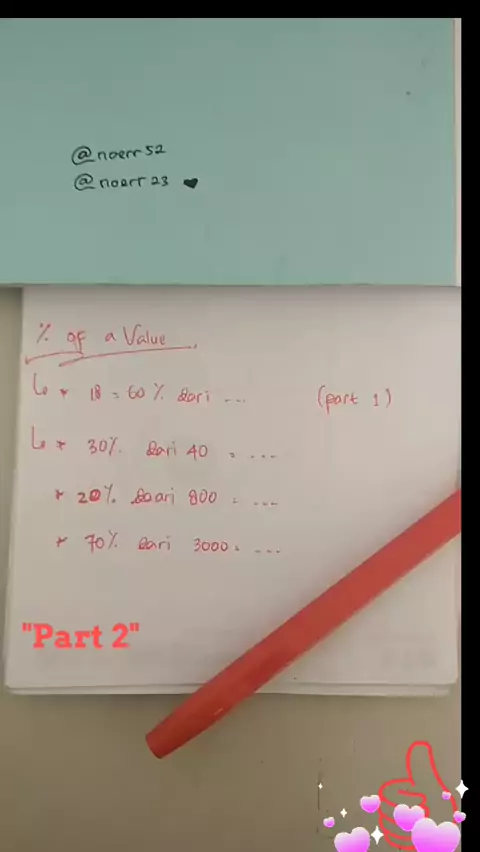 @noerr52
@noerr23 ♥
% of a Value
↳ * 18 = 60% dari ... (part 1)
↳ * 30% dari 40 = ...
* 20% dari 800 = ...
* 70% dari 3000 = ...
"Part 2"